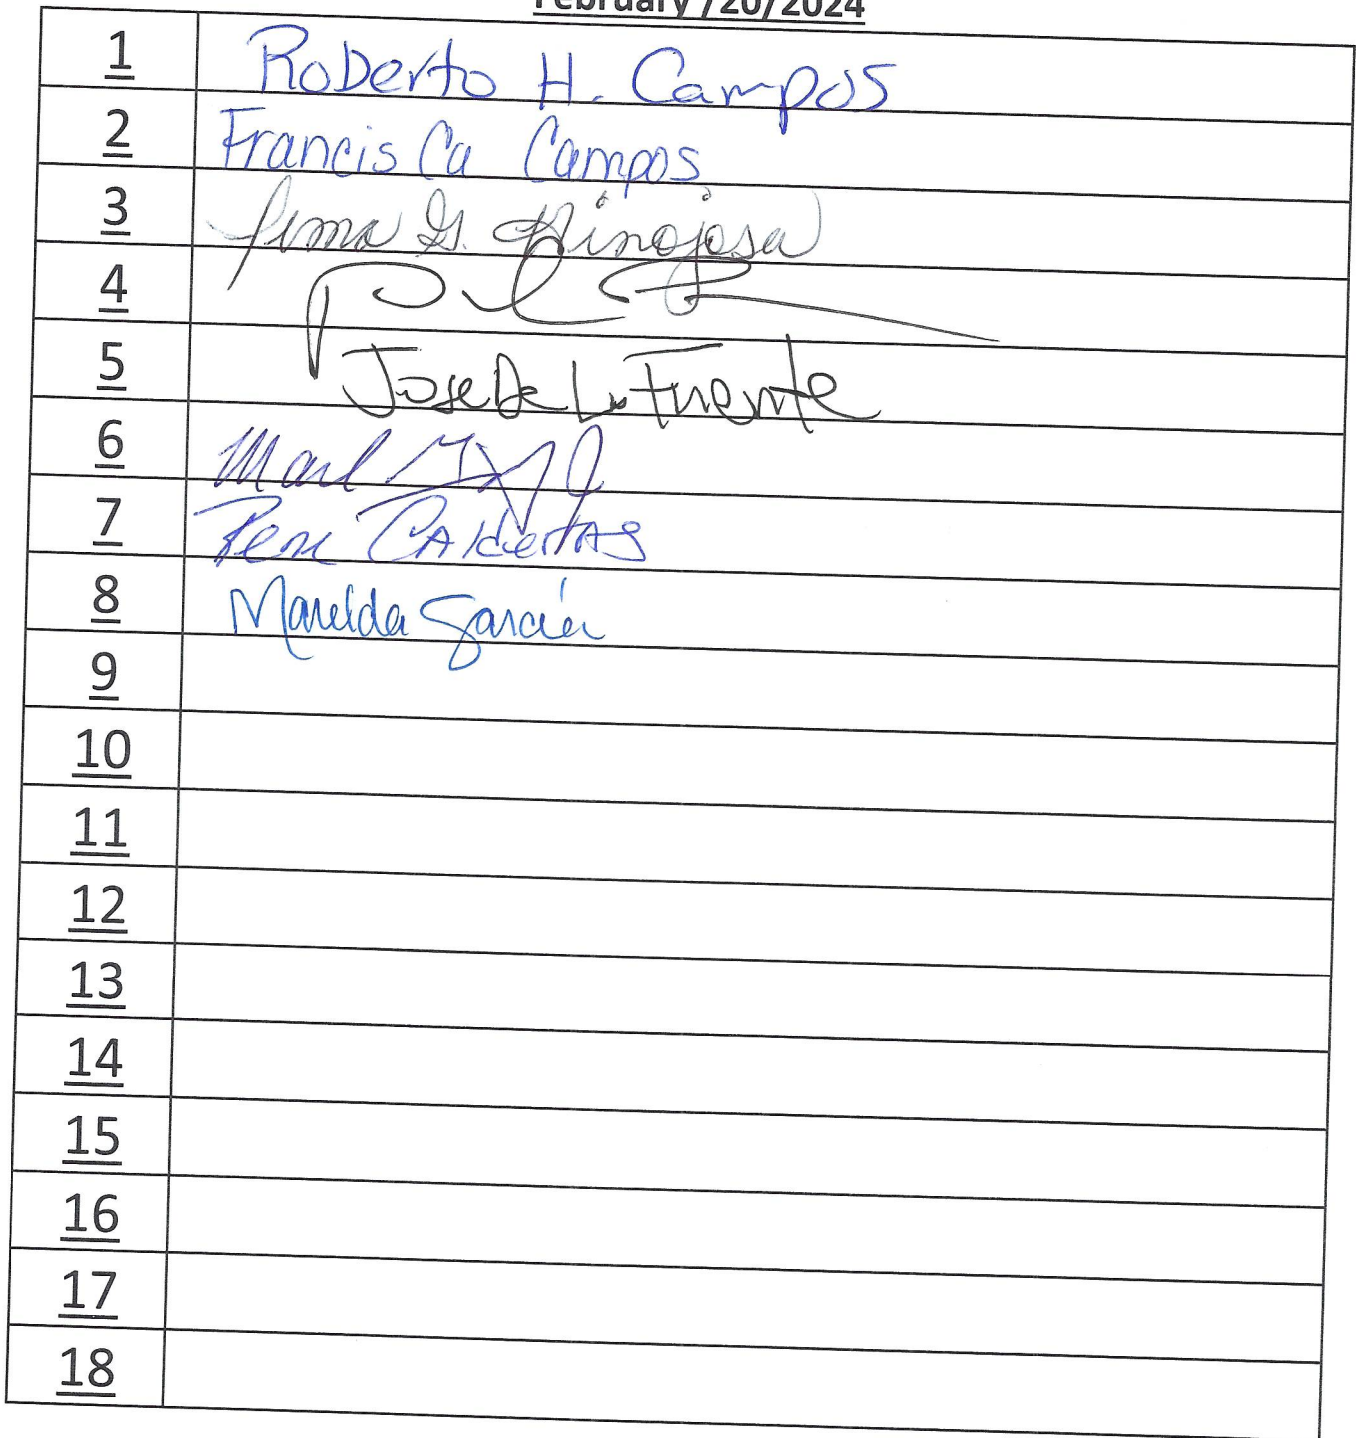 February /20/2024
1 Roberto H. Campos
2 Francis Ca Campos
3 G. Hinojosa
4
5 Jose De La Fuente
6
7 Rene
8 Marelda Garcia
9
10
11
12
13
14
15
16
17
18